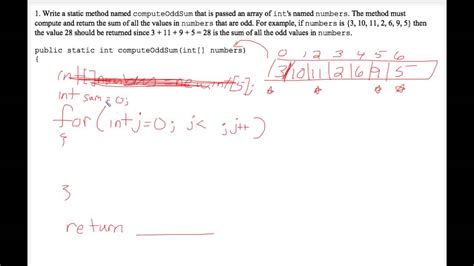 1. Write a static method named computeOddSum that is passed an array of int's named numbers. The method must
compute and return the sum of all the values in numbers that are odd. For example, if numbers is {3, 10, 11, 2, 6, 9, 5} then
the value 28 should be returned since 3 + 11 + 9 + 5 = 28 is the sum of all the odd values in numbers.
public static int computeOddSum(int[] numbers)
{
0 1 2 3 4 5 6
3 10 11 2 6 9 5
int[] numbers = new int[5];
int sum = 0;
for (int j=0; j< ; j++)
{
}
return